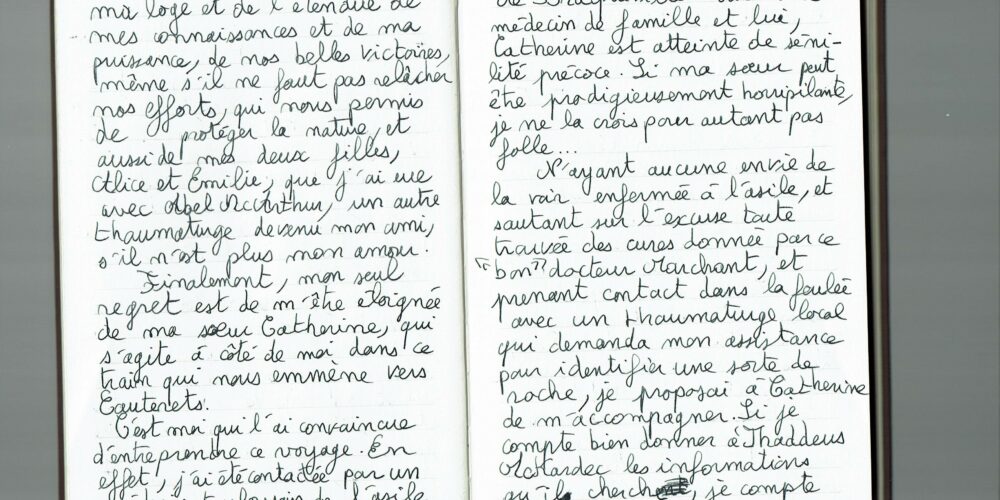 ma loge et de l'étendue de
mes connaissances et de ma
puissance, de nos belles victoires,
même s'il ne faut pas relâcher
nos efforts, qui nous permis
de protéger la nature, et
aussi de mes deux filles,
Alice et Emilie, que j'ai eue
avec Abel McCarthur, un autre
thaumaturge devenu mon ami,
s'il n'est plus mon amour.
Finalement, mon seul
regret est de m'être éloignée
de ma sœur Catherine, qui
s'agite à côté de moi dans ce
train qui nous emmène vers
Cauterets.
C'est moi qui l'ai convaincue
d'entreprendre ce voyage. En
effet, j'ai été contactée par un
de l'asile
médecin de famille et lui,
Catherine est atteinte de séni-
lité précoce. Si ma sœur peut
être prodigieusement horripilante,
je ne la crois pour autant pas
folle...
N'ayant aucune envie de
la voir enfermée à l'asile, et
sautant sur l'excuse toute
trouvée des cures donnée par ce
"bon" docteur Marchant, et
prenant contact dans la foulée
avec un thaumaturge local
qui demanda mon assistance
pour identifier une sorte de
roche, je proposai à Catherine
de m'accompagner. Si je
compte bien donner à Thaddeus
les informations
qu'il cherche, je compte